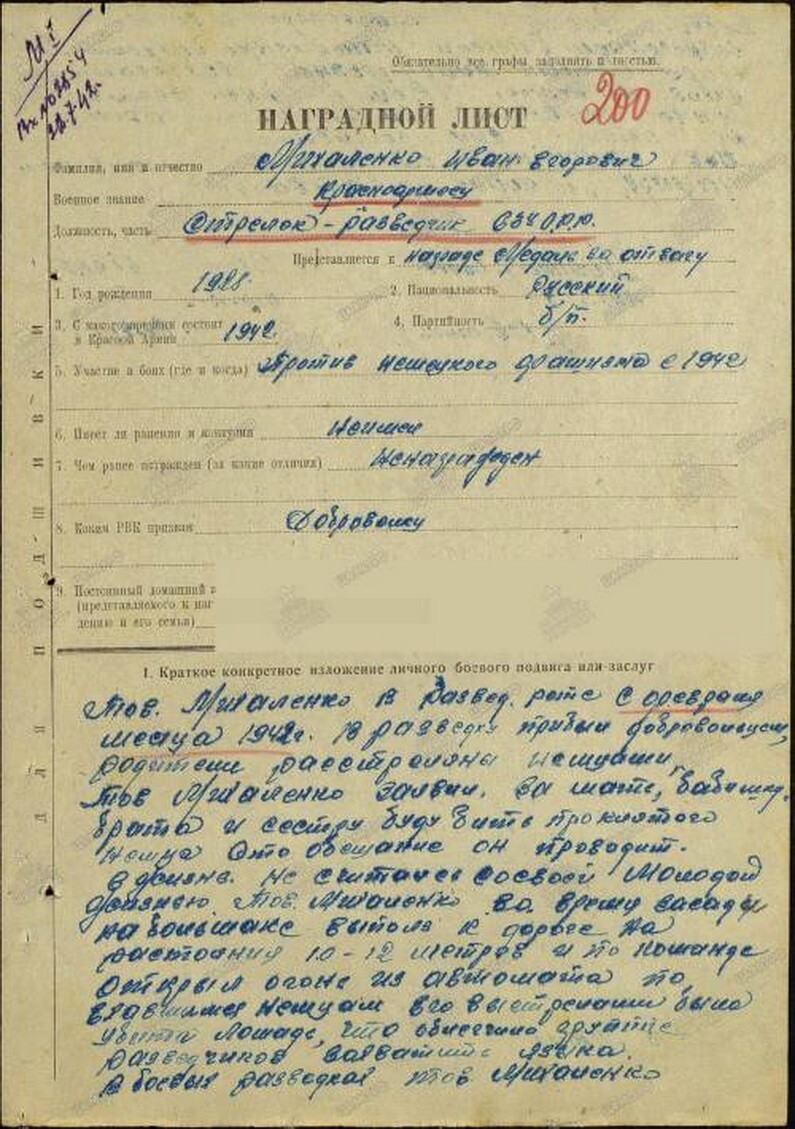 М I
Вх № 02854
22.7.42г.
Обязательно все графы заполнять полностью.
200
НАГРАДНОЙ ЛИСТ
Фамилия, имя и отчество Михаленко Иван Егорович
Военное звание Красноармеец
Должность, часть Стрелок-разведчик
Представляется к награде Медаль за отвагу
1. Год рождения 1928. 2. Национальность Русский
3. С какого времени состоит в Красной Армии 1942. 4. Партийность б/п.
5. Участие в боях (где и когда) Против немецкого фашизма с 1942
6. Имеет ли ранения и контузии Неимел
7. Чем ранее награжден (за какие отличия) Ненагражден
8. Каким РВК призван
9. Постоянный домашний
(представляемого к наг
дению и его семьи)
ДЛЯ ПОДШИВКИ
I. Краткое конкретное изложение личного боевого подвига или заслуг
Тов. Михаленко в развед. роте с февраля
месяца 1942г. В разведку прибыл добровольцем,
родители расстреляны немцами.
Тов Михаленко заявил. За мать, бабушку,
брата и сестру буду бить проклятого
немца Это обещание он проводит.
в жизнь. Не считаясь сосвоей молодой
жизнью Тов. Михаленко во время засады
на большаке выполз к дороге на
растояния 10-12 метров и по команде
открыл огонь из автомата по
немцам его выстрелами была
убита лошадь, что обеспечило группе
разведчиков захватить языка.
В боевых разведках тов Михаленко